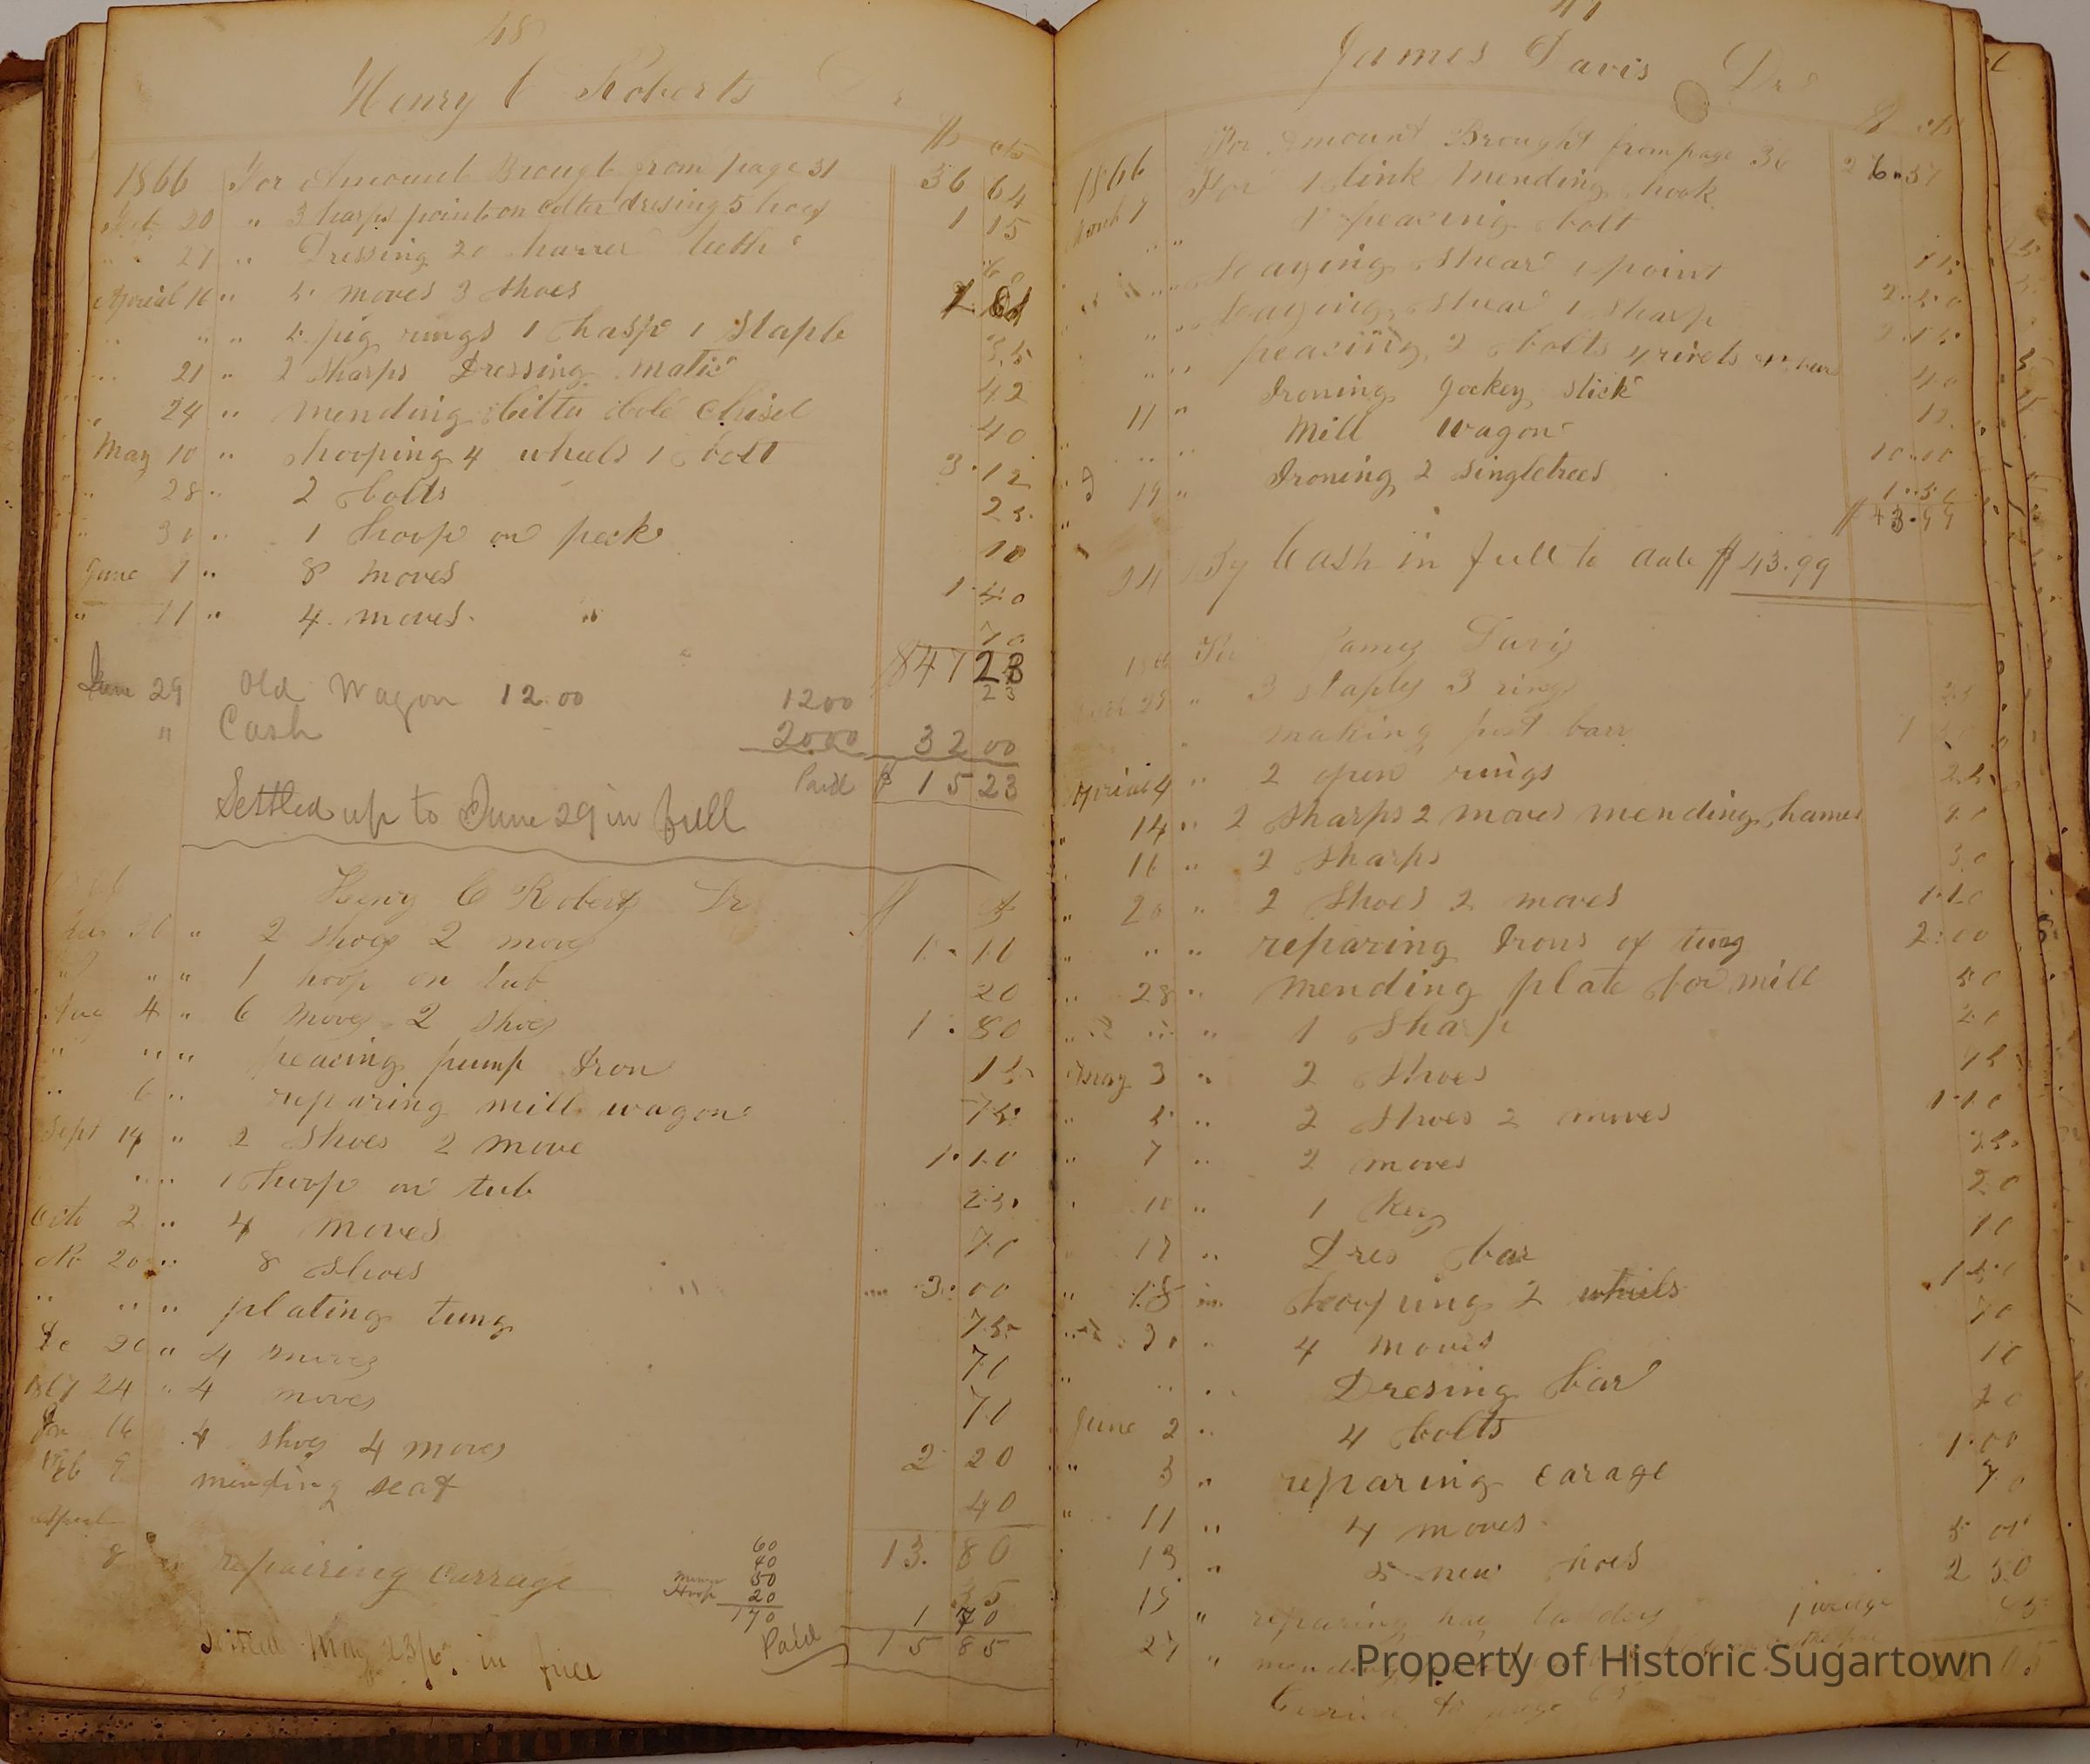 48
Henry C Roberts Dr
$ cts
1866 For Amount Brought from page 31 36 64
20 " 3 harps point on colter dresing 5 hoes 1 15
27 " Dressing 20 harrer teeth 60
Aprial 16 " 5 moves 3 Shoes
" " " 2 pig rings 1 hasp 1 Staple 35
21 " 2 Sharps Dressing matic 42
" 24 " mending cold Chisel 40
May 10 " hooping 4 wheels 1 bolt 3.12
" 28 " 2 bolts 25
" 30 " 1 hoop on peck 10
June 7 " 8 moves 1.40
" 11 " 4 moves. 70
$47 23
23
June 29 Old Wagon 12.00 1200
" Cash 2000 32 00
Paid $ 15 23
Settled up to June 29 in full
Heny C Roberts Dr $
30 " 2 shoes 2 moves 1.10
" " " 1 hoop on tub 20
Aug 4 " 6 moves 2 shoes 1.80
" " " peacing pump Iron 15
" 6 " reparing mill wagon 75
Sept 14 " 2 Shoes 2 move 1.10
" " 1 hoop on tub 25
Octo 2 " 4 moves 70
No 20 " 8 Shoes 3.00
" " " plating tung 75
De 20 " 4 moves 70
1867 24 " 4 moves 70
Jan 16 4 shoes 4 moves 2 20
Feb 9 mending seat 40
13.80
8 repairing carrage
60
40
50
Hoop 20
170
35
1 70
Paid 15 85
Settled May 23 in full
James Davis Dr
$ cts
1866 For Amount Brought from page 36 26.37
March 7 For 1 link mending hook
" " 1 peacing bolt
" " Laying Shear 1 point 15
" " Laying Shear 1 Sharp 2.50
" " peacing 2 bolts 4 rivets 2.15
11 " Ironing Jockey Stick 40
" " Mill Wagon 12
19 " Ironing 2 Singletrees 10.00
1.50
$43.99
24 By Cash in full to date $43.99
James Davis
" 3 staples 3 rings
making post barr 1
Aprial 4 " 2 open rings 25
" 14 " 2 Sharps 2 moves mending hames 90
" 16 " 2 Sharps 30
" 20 " 2 Shoes 2 moves 1.10
" " " reparing Irons of tung 2.00
" 28 " mending plate for mill 50
" " " 1 Sharp 20
May 3 " 2 Shoes 75
" 5 " 2 Shoes 2 moves 1.10
" 7 " 2 moves 35
" 10 " 1 Key 20
" 17 " Dres bar 10
" 18 " hooping 2 wheels 1.50
" 30 " 4 moves 70
" " " Dresing bar 10
June 2 " 4 bolts 20
" 3 " reparing carage 1.00
" 11 " 4 moves 70
13 " 5 new
15 " reparing hay 2 50
27 " mending
Property of Historic Sugartown